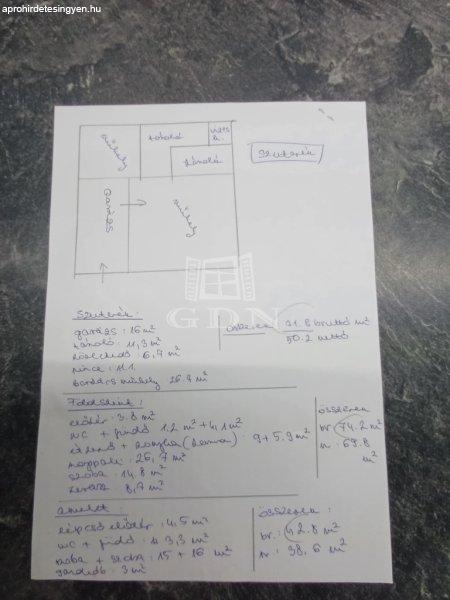 aprohirdetesingyen.hu
műhely
tároló
tároló
Szuterén
Garázs
műhely
GDN
Szuterén:
garázs: 16 m²
tároló: 11,3 m²
közlekedő 6,7 m²
pince: 11.1
barkács műhely 26.7 m²
összesen 91.8 bruttó m²
50.2 nettó
Földszint:
előtér: 3.8 m²
wc + fürdő 1.2 m² + 4,1 m²
étkező + konyha (kamra): 9 + 5.9 m²
nappali: 26,7 m²
szoba: 14.8 m²
terasz: 8,7 m²
összesen
br: 74.2 m²
n: 69.8 m²
emelet:
lépcső előtér: 4,5 m²
wc + fürdő: 3,3 m²
szoba + szoba: 15 + 16 m²
gardrób: 3 m²
összesen:
br.: 42.8 m²
n: 38,6 m²